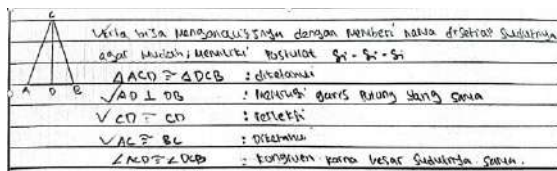 C
Kita bisa menganalisisnya dengan memberi nama disetiap sudutnya
agar mudah, memiliki Postulat Si - Si - Si
△ACD ≅ △DCB : diketahui
A D B
√AD ⊥ DB : memiliki garis potong yang sama
√ CD ≅ CD : refleksi
√ AC ≅ BC : Diketahui
∠ACD ≅ ∠DCB : kongruen karna besar sudutnya sama.